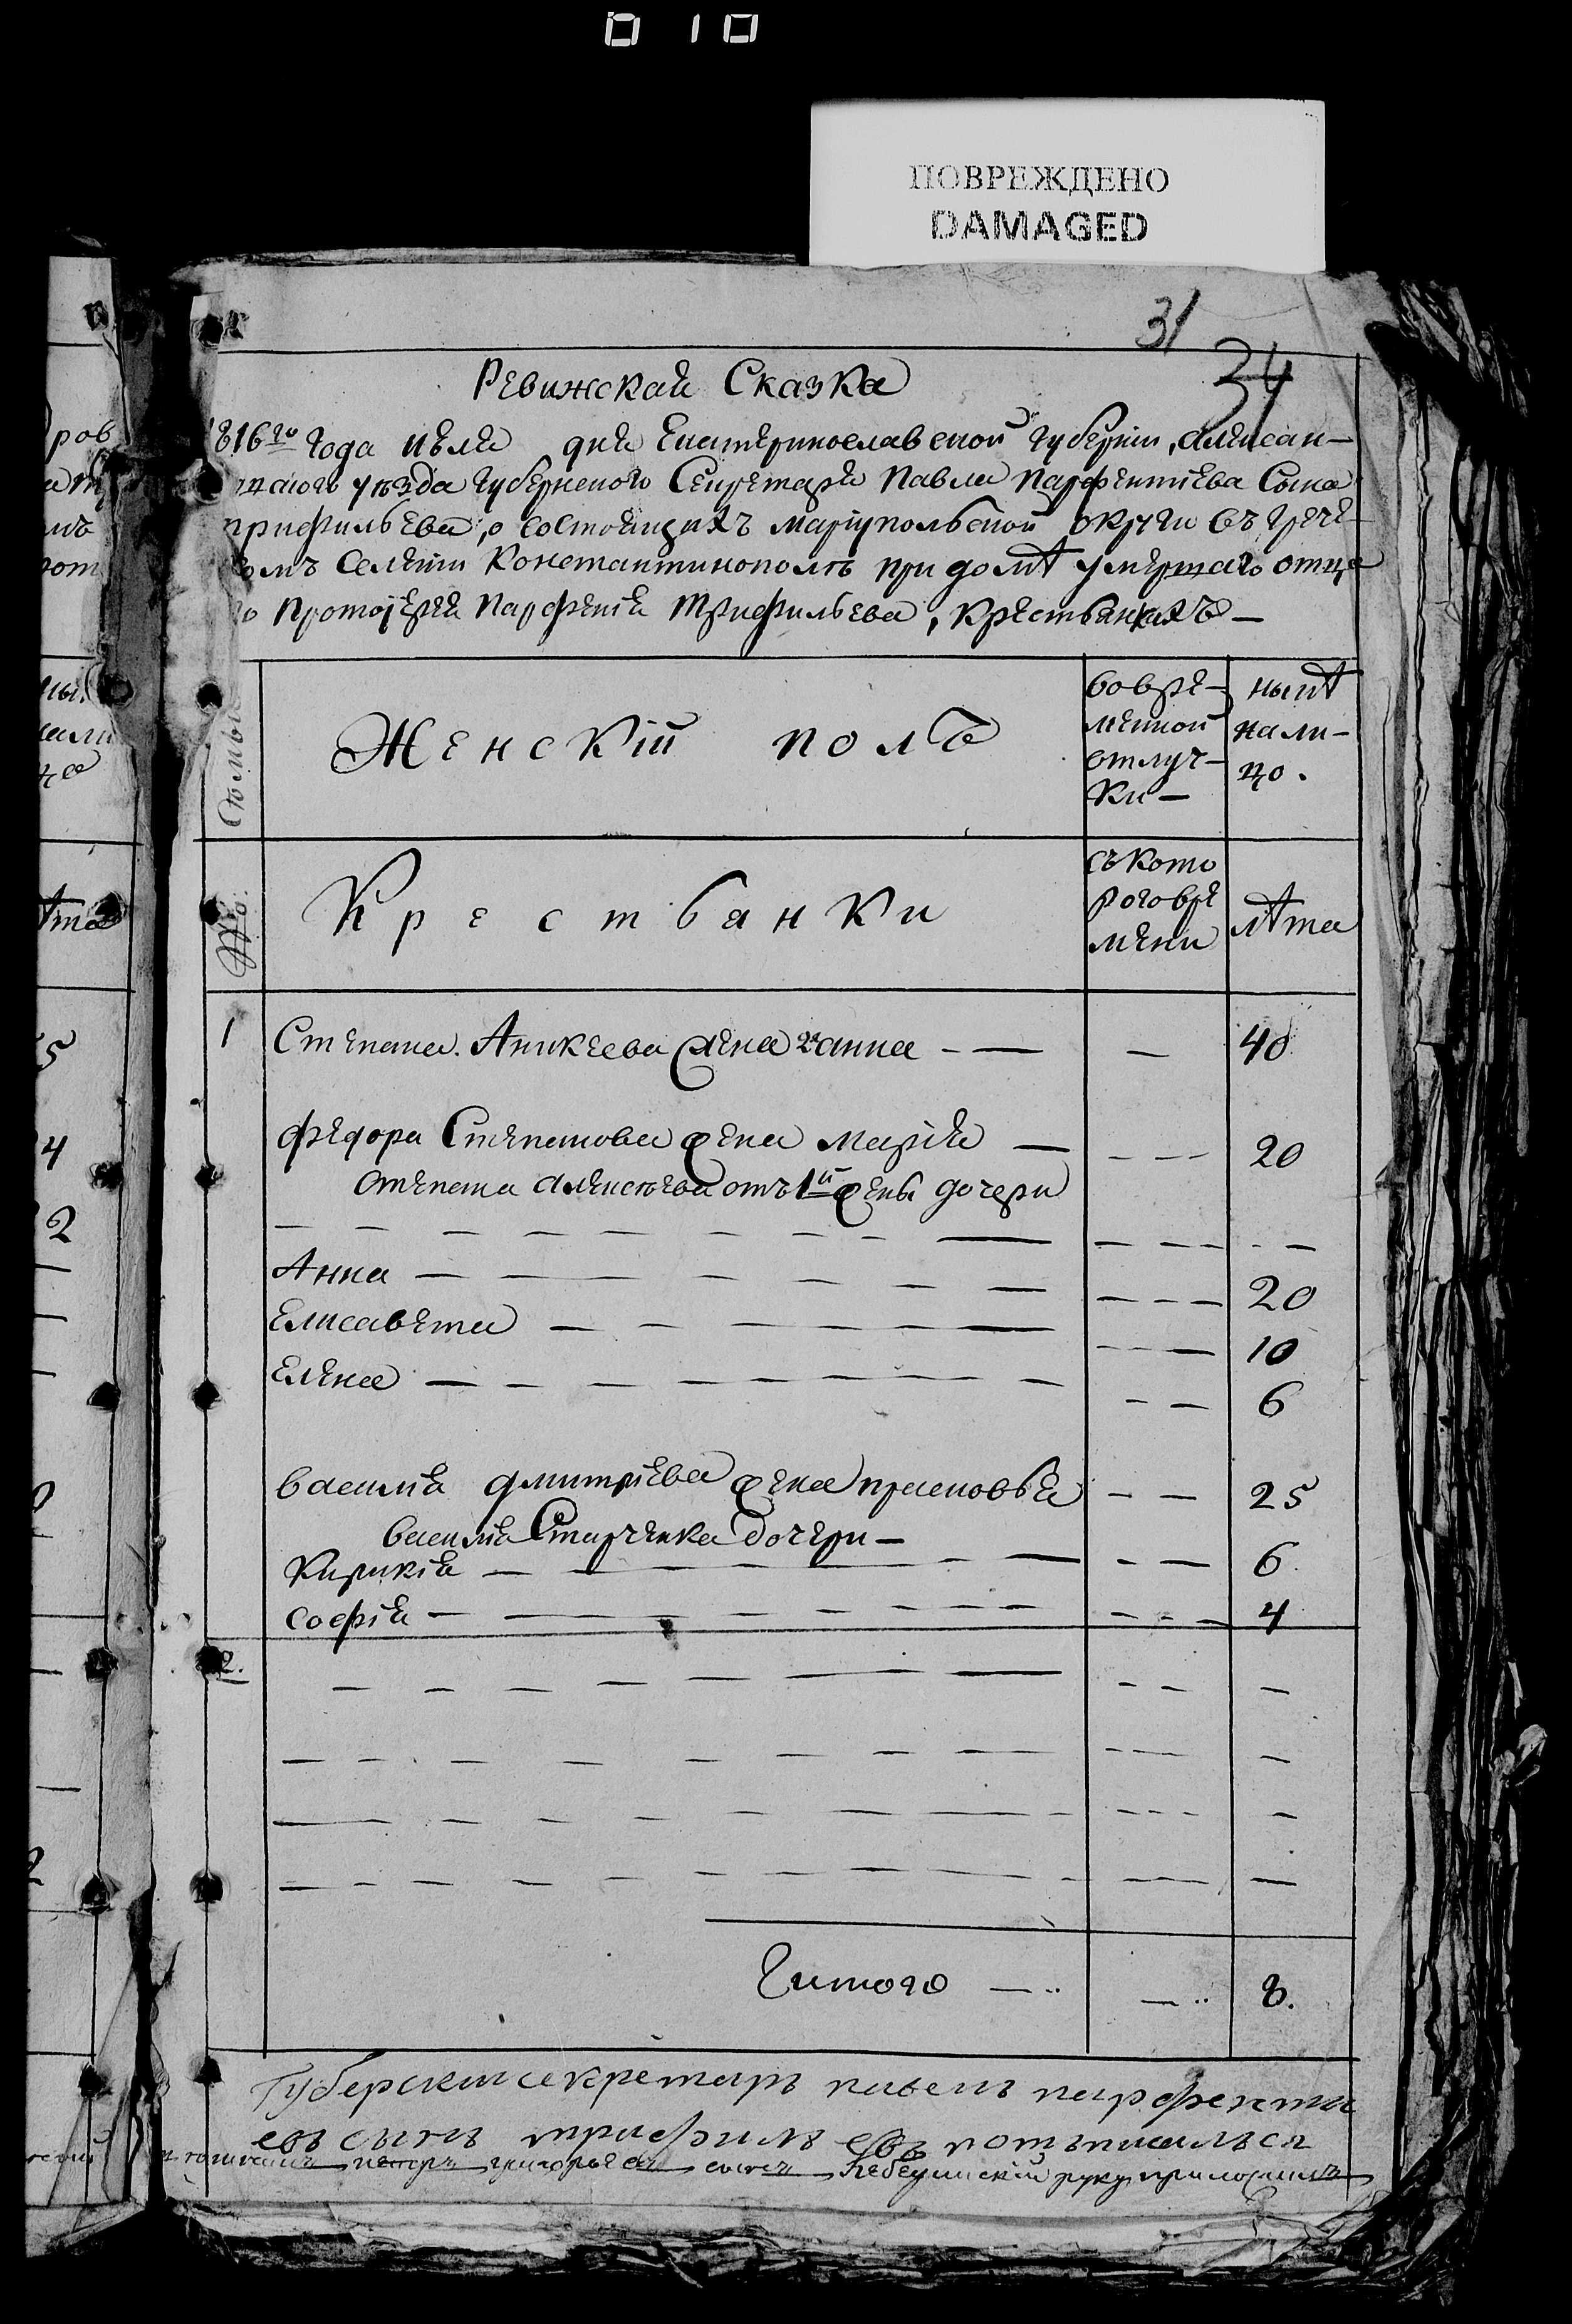 010
ПОВРЕЖДЕНО
DAMAGED
31
34
Ревижская Сказка
1816го года июля дня Екатеринославской губернии, Алексан-
уезда губернского Секретаря Павла Парфентиева Сына
трифильева, о состоящихъ мариупольской округи въ грече-
омъ Селении Константинополѣ при домѣ умершаго отца
го протоиерея Парфения Трифильева, крестьянкахъ —
Женскій полъ
во вре-
менной
отлуч-
ки —
нынѣ
нали-
цо.
Крестьянки
съ кото
раго вре
мени
лѣта
1
Степана Аникеева жена 2я анна — — 40
Федора Степанова жена Мария — — — 20
Степана Алексѣева отъ 1й жены дочери
Анна — — 20
Елисавета — — 10
Елена — — 6
Василия Дмитриева жена прасковья — — 25
Василия Старченка дочери —
Кирикия — — 6
София — — 4
2.
Читого — — 8.
Губерскии секретарь павелъ парфенти
евъ сынъ трифильевъ потписался
петръ григорьевъ сынъ руку приложилъ